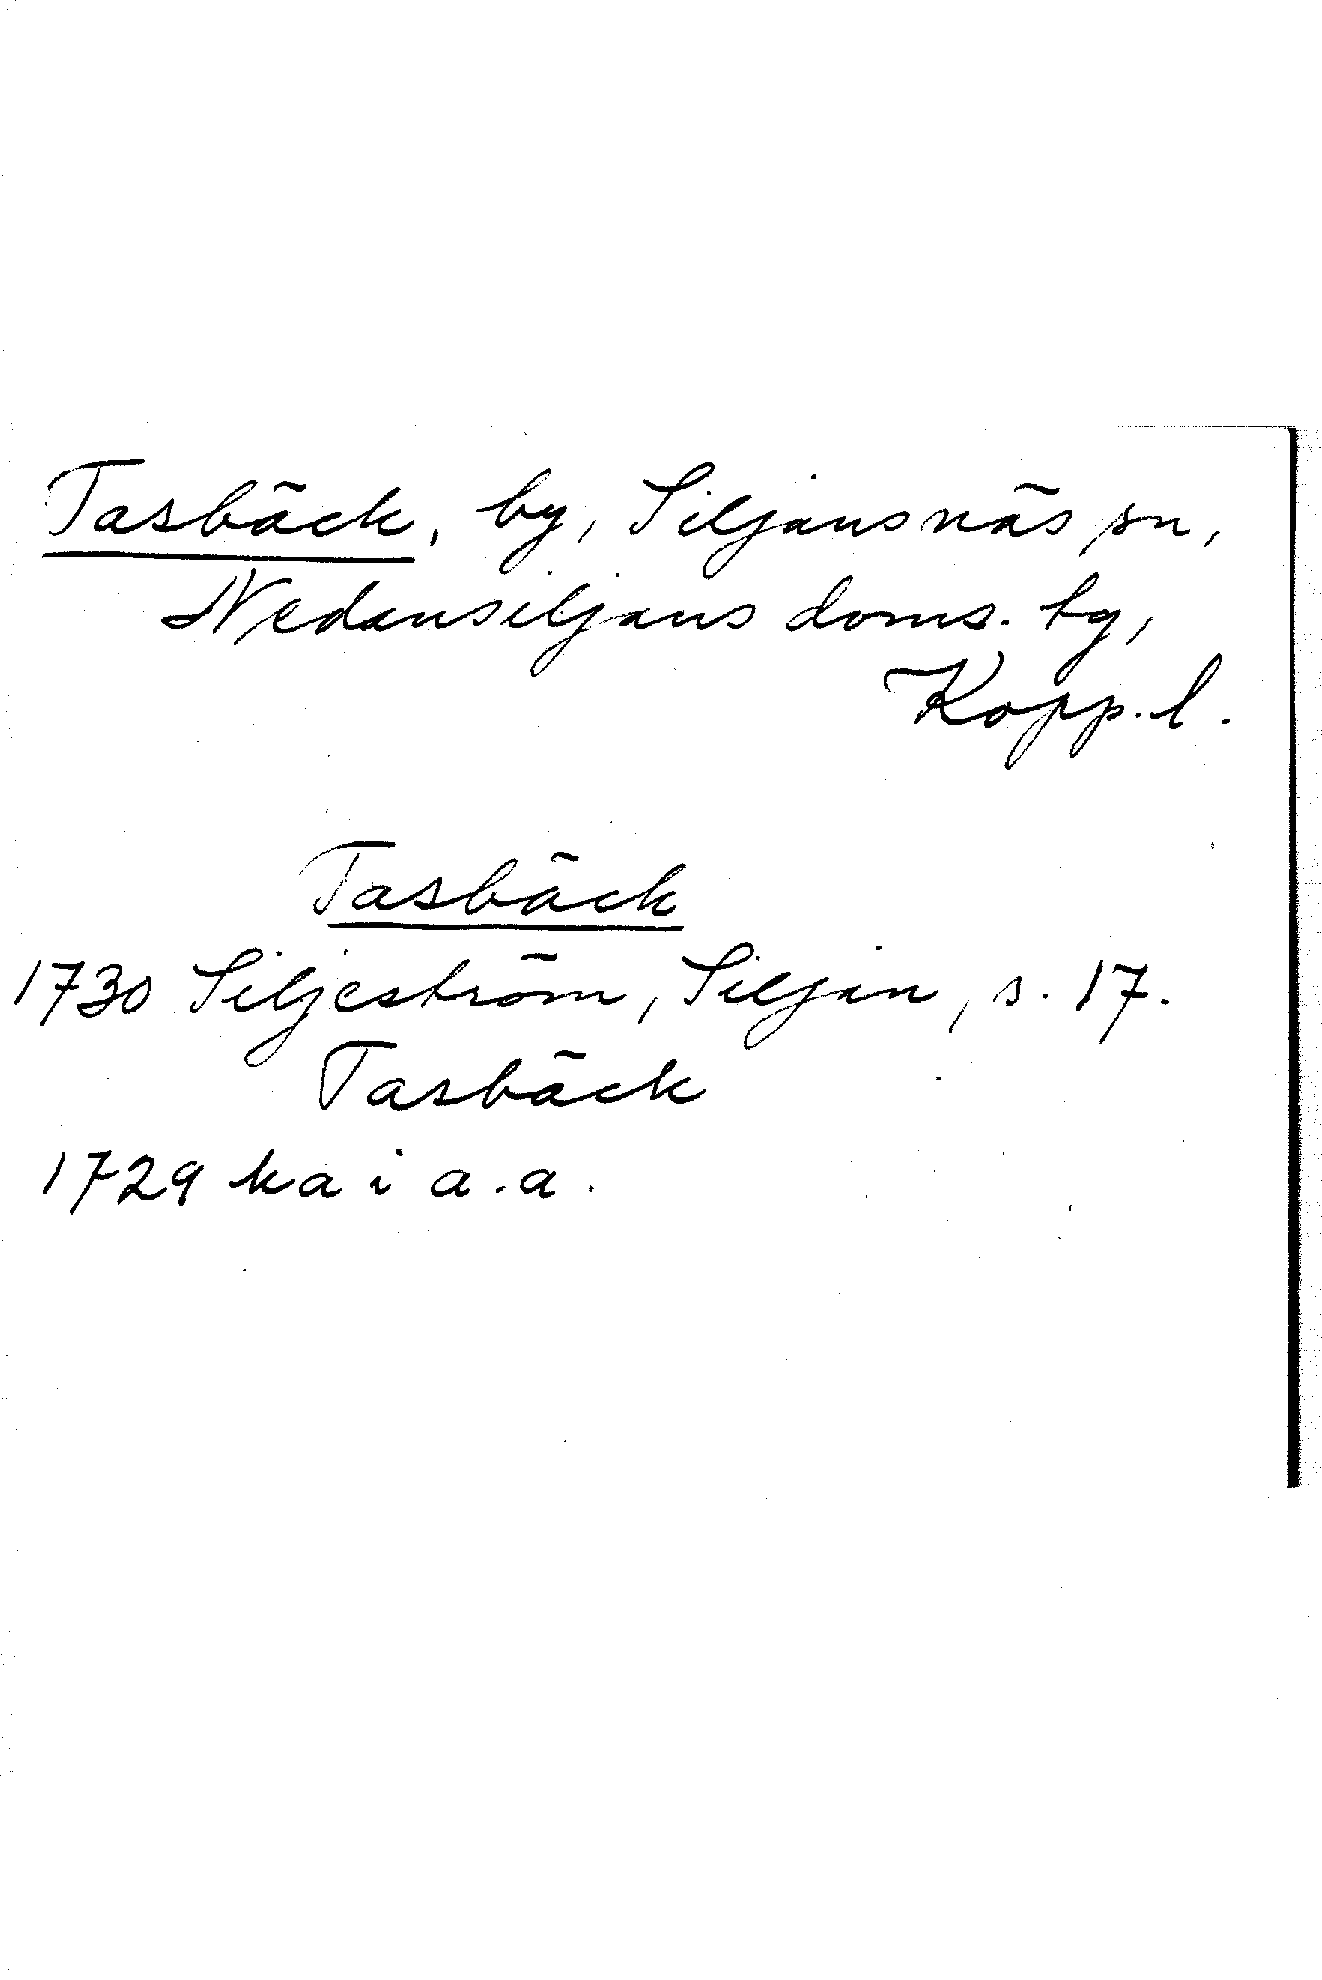 Tasbäck, by, Siljansnäs sn,
Nedansiljans doms. tg,
Kopp. l.
Tasbäck
1730 Siljeström, Siljan, s. 17.
Tasbäck
1729 ka i a.a.